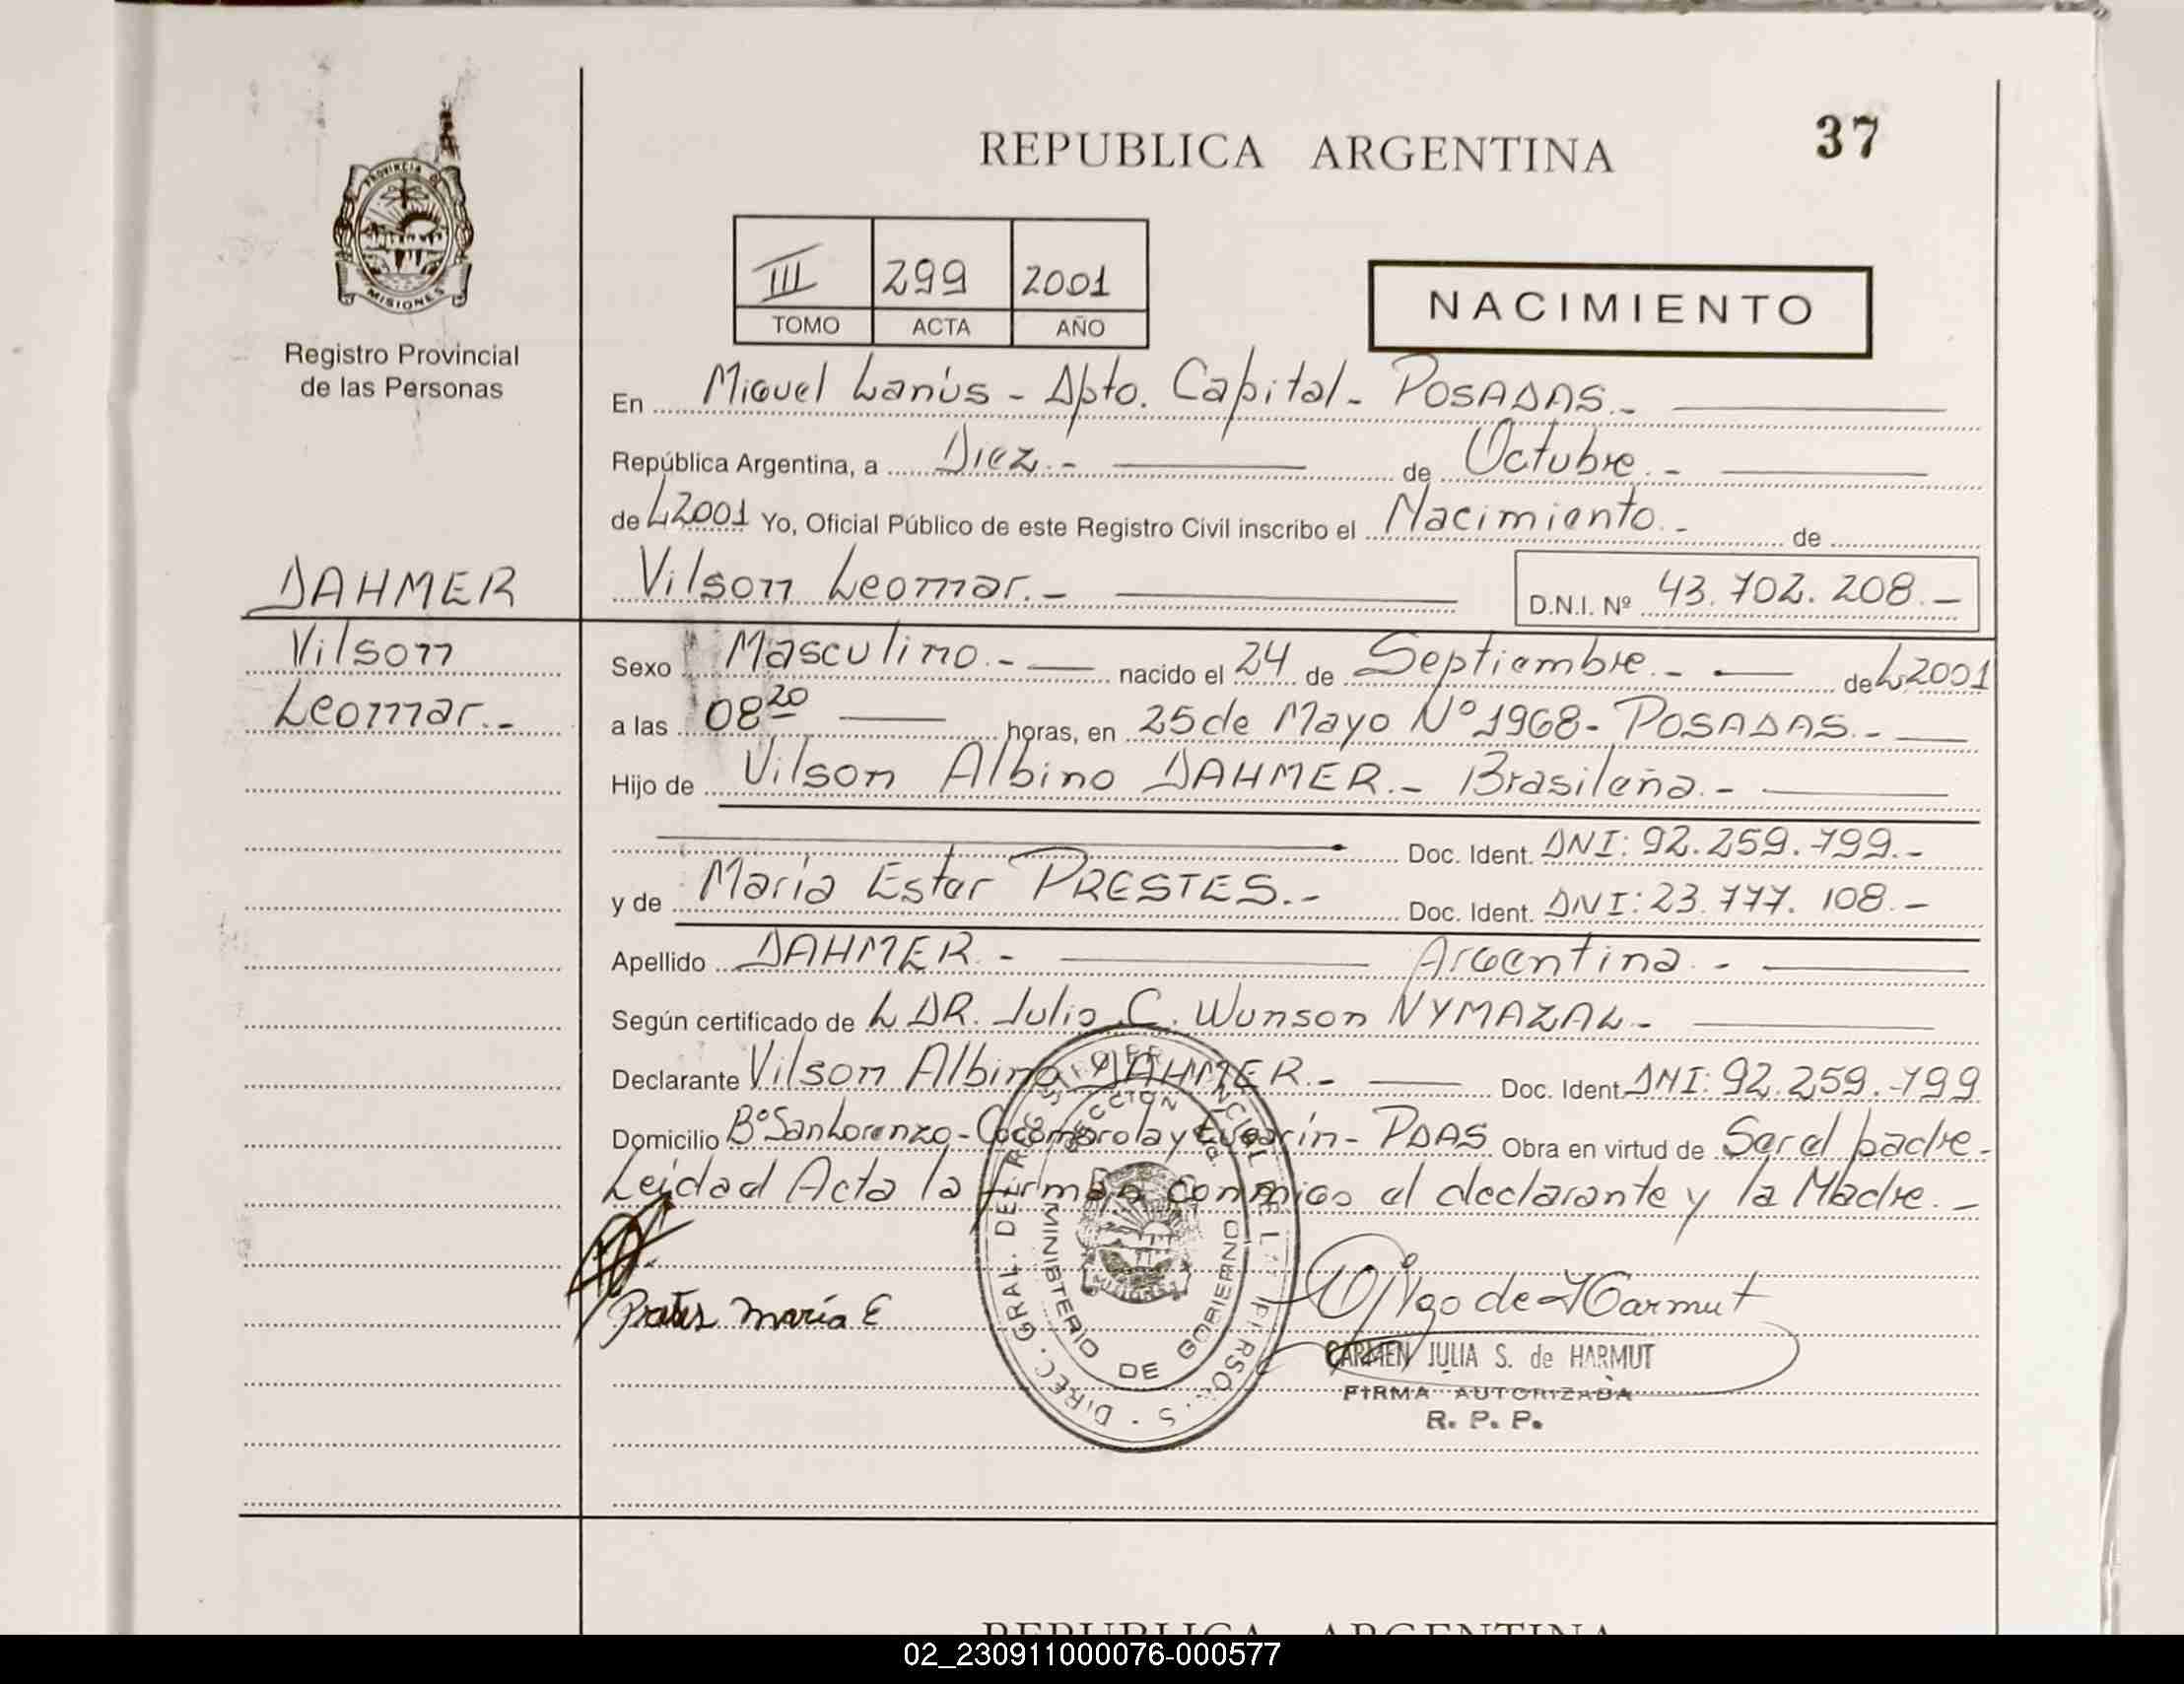 REPUBLICA ARGENTINA
37
PROVINCIA DE
MISIONES
Registro Provincial
de las Personas
III 299 2001
TOMO ACTA AÑO
NACIMIENTO
En Miguel Lanús - Dpto. Capital - POSADAS.-
República Argentina, a Diez.- de Octubre.-
de L2001 Yo, Oficial Público de este Registro Civil inscribo el Nacimiento.- de
DAHMER
Vilson Leomar.- D.N.I. Nº 43.702.208.-
Vilson
Leomar.-
Sexo Masculino.- nacido el 24 de Septiembre.- de L2001
a las 08 20 horas, en 25 de Mayo Nº 1968 - POSADAS.-
Hijo de Vilson Albino DAHMER.- Brasileña.-
Doc. Ident. DNI: 92.259.799.-
y de María Ester PRESTES.- Doc. Ident. DNI: 23.777.108.-
Apellido DAHMER.- Argentina.-
Según certificado de L DR. Julio C. Wunson NYMAZAL-
Declarante Vilson Albino DAHMER.- Doc. Ident. DNI: 92.259.799
Domicilio Bº San Lorenzo - Cocomarola y - PDAS Obra en virtud de Ser el padre.-
Leída el Acta la firman conmigo el declarante y la Madre.-
María E
DIREC. GRAL. DEL REGISTRO PROVINCIAL DE LAS PERSONAS
MINISTERIO DE GOBIERNO
MISIONES
de Harmut
CARMEN JULIA S. de HARMUT
FIRMA AUTORIZADA
R. P. P.
REPUBLICA ARGENTINA
02_230911000076-000577